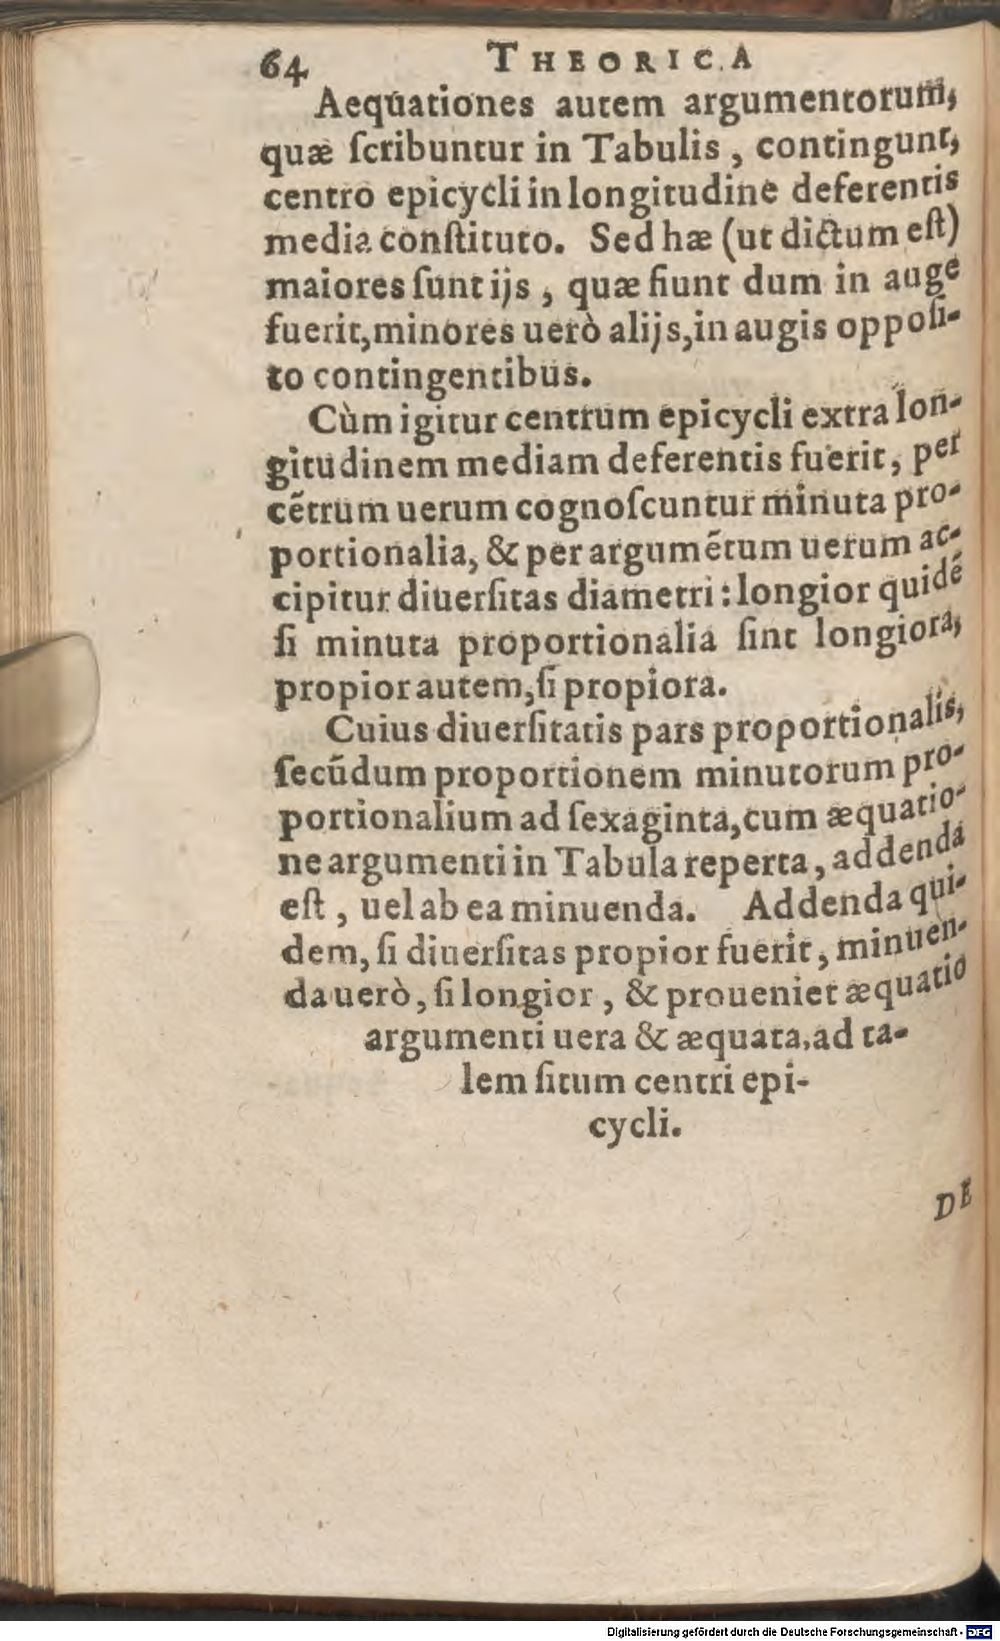 64 THEORICA
Aequationes autem argumentorum,
quæ ſcribuntur in Tabulis, contingunt,
centro epicycli in longitudine deferentis
media conſtituto. Sed hæ (ut dictum eſt)
maiores ſunt ijs, quæ fiunt dum in auge
fuerit, minores uerò alijs, in augis oppoſi-
to contingentibus.
Cùm igitur centrum epicycli extra lon-
gitudinem mediam deferentis fuerit, per
cẽtrum uerum cognoſcuntur minuta pro-
portionalia, & per argumẽtum uerum ac-
cipitur diuerſitas diametri: longior quidẽ
ſi minuta proportionalia ſint longiora,
propior autem, ſi propiora.
Cuius diuerſitatis pars proportionalis,
ſecũdum proportionem minutorum pro-
portionalium ad ſexaginta, cum æquatio-
ne argumenti in Tabula reperta, addenda
eſt, uel ab ea minuenda. Addenda qui-
dem, ſi diuerſitas propior fuerit, minuen-
da uerò, ſi longior, & proueniet æquatio
argumenti uera & æquata, ad ta-
lem ſitum centri epi-
cycli.
DE
Digitalisierung gefördert durch die Deutsche Forschungsgemeinschaft - DFG